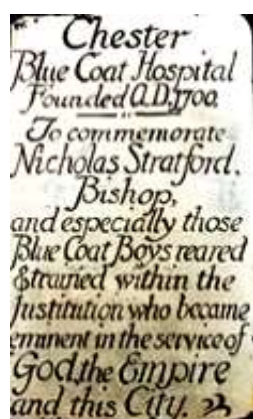 Chester
Blue Coat Hospital
Founded A.D. 1700.
BY
To commemorate
Nicholas Stratford.
Bishop,
and especially those
Blue Coat Boys reared
& trained within the
Institution who became
eminent in the service of
God, the Empire
and this City.